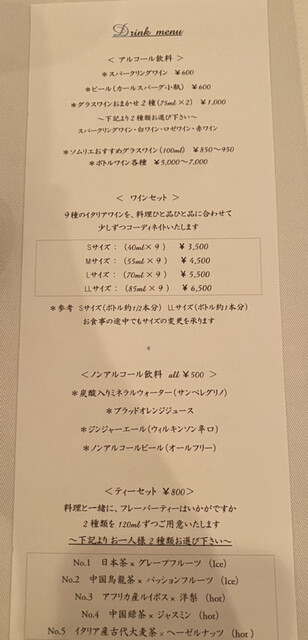 Drink menu
＜ アルコール飲料 ＞
＊スパークリングワイン ￥600
＊ビール（カールスバーグ小瓶）￥600
＊グラスワインおまかせ２種（75ml×2）￥1,000
～下記より２種類お選び下さい～
スパークリングワイン・白ワイン・ロゼワイン・赤ワイン
＊ソムリエおすすめグラスワイン（100ml）￥850～950
＊ボトルワイン各種 ￥5,000～7,000
＜ ワインセット ＞
９種のイタリアワインを、料理ひと品ひと品に合わせて
少しずつコーディネイトいたします
Sサイズ：（40ml×９）￥3,500
Mサイズ：（55ml×９）￥4,500
Lサイズ：（70ml×９）￥5,500
LLサイズ：（85ml×９）￥6,500
＊参考 Sサイズ（ボトル約1/2本分） LLサイズ（ボトル約１本分）
お食事の途中でもサイズの変更を承ります
＊
＜ ノンアルコール飲料 all ￥500 ＞
＊炭酸入りミネラルウォーター（サンペレグリノ）
＊ブラッドオレンジジュース
＊ジンジャーエール（ウィルキンソン辛口）
＊ノンアルコールビール（オールフリー）
＜ ティーセット ￥800＞
料理と一緒に、フレーバーティーはいかがですか
２種類を 120mlずつご用意いたします
～下記よりお一人様２種類お選び下さい～
No.1 日本茶×グレープフルーツ （Ice）
No.2 中国烏龍茶×パッションフルーツ （Ice）
No.3 アフリカ産ルイボス×洋梨 （hot）
No.4 中国緑茶×ジャスミン （hot）
No.5 イタリア産古代大麦茶×ヘーゼルナッツ （hot）